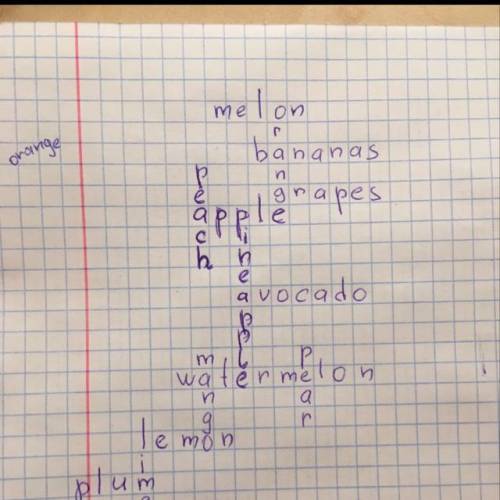 melon
orange
orange
bananas
peach
grapes
apple
pineapple
avocado
mango
pear
watermelon
lemon
lime
plum